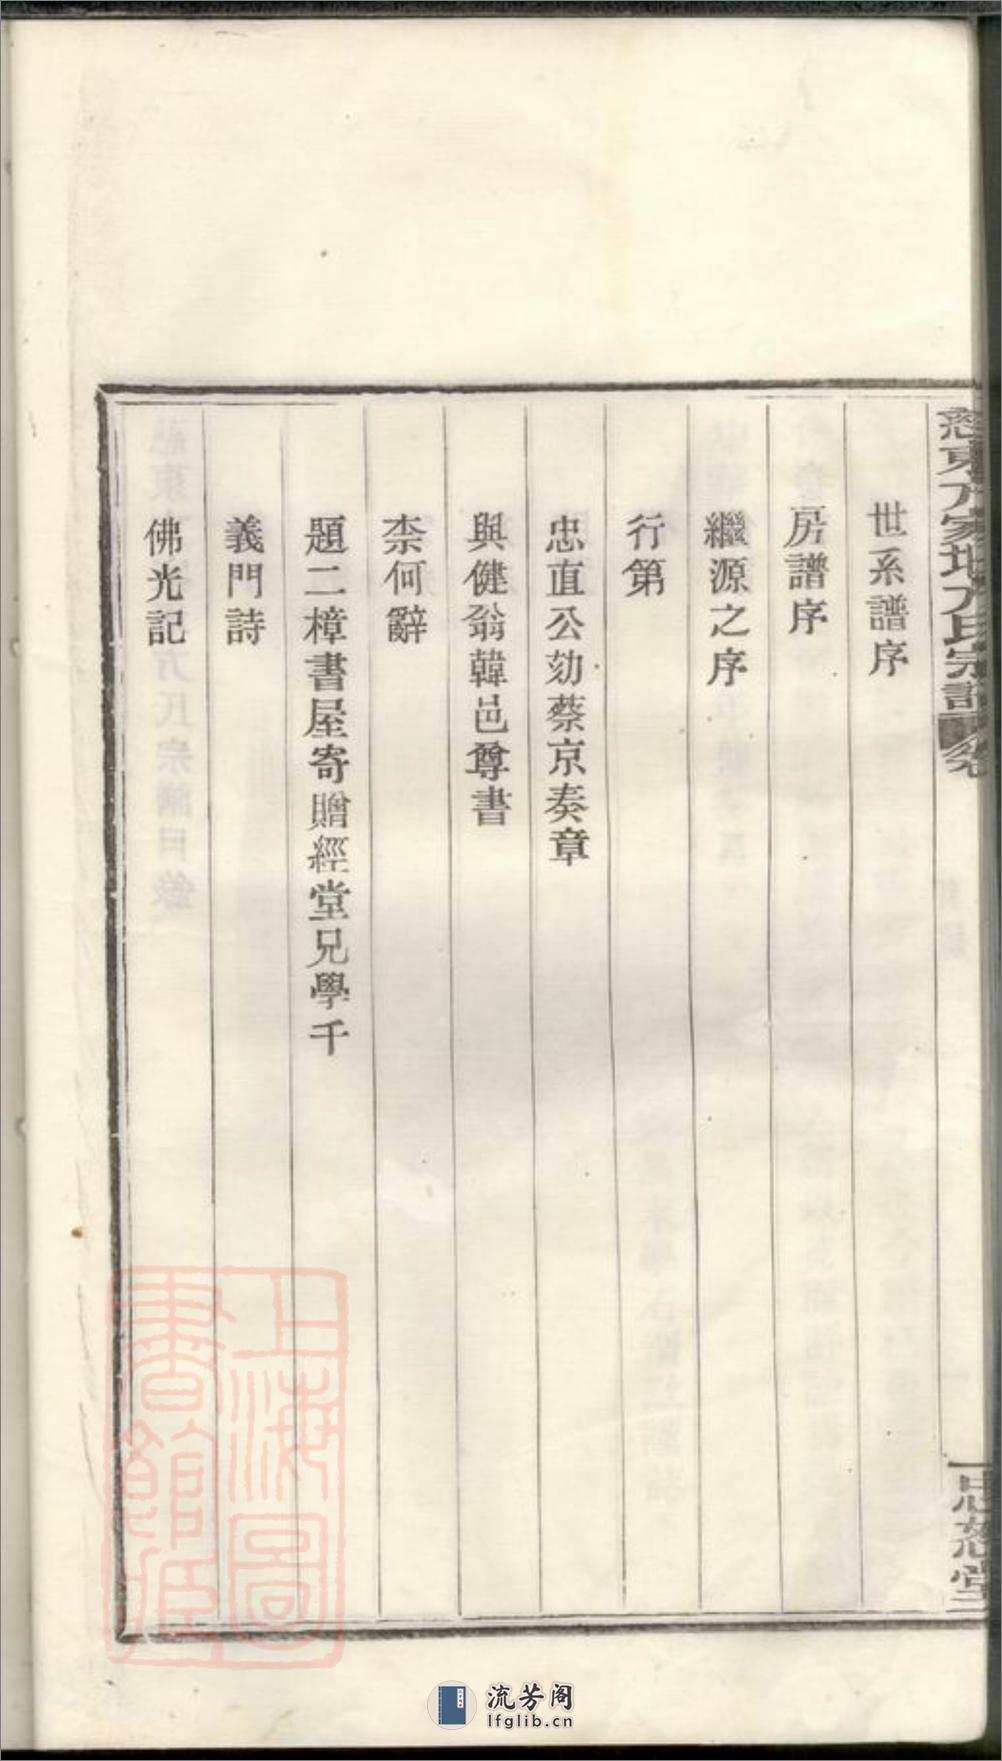 慈東方家堰方氏宗譜 卷
世系譜序
房譜序
繼源之序
行第
忠直公劾蔡京奏章
與健翁韓邑尊書
柰何辭
題二樟書屋寄贈經堂兄學千
義門詩
佛光記
思慈堂
上海圖
書館藏
流芳阁
lfglib.cn